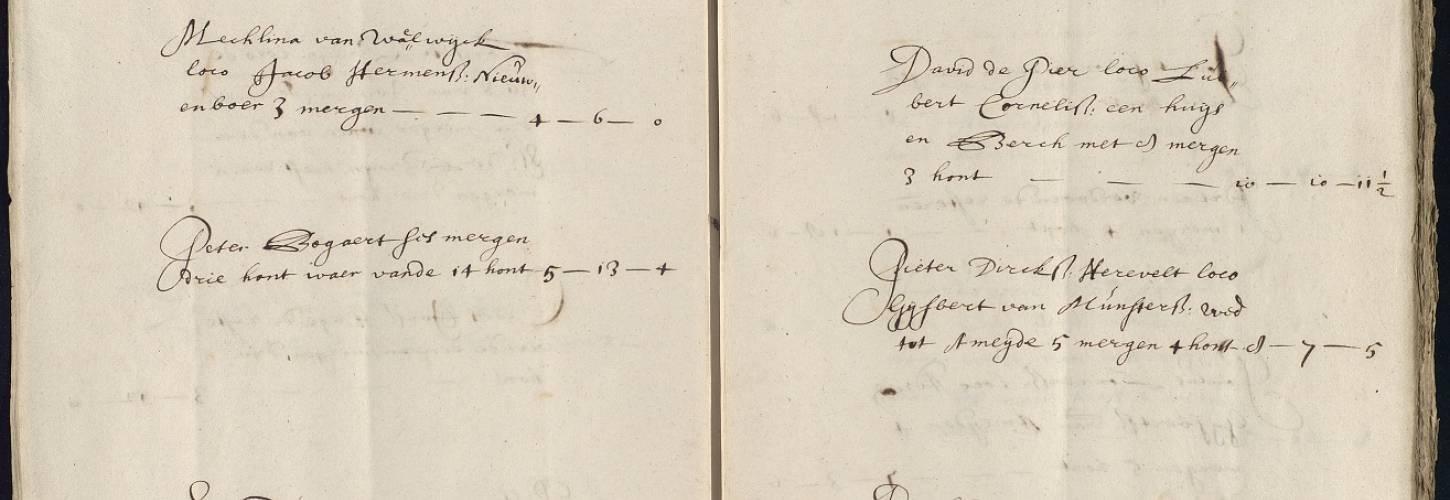 Mechlina van Walwijck
loco Jacob Hermenß: Nieuw„
enboer 3 mergen — — — — 4 — 6 — 0
Peter Bogaert ses mergen
drie hont waer vande 14 hont 5 — 13 — 4
David de Pier loco Lub„
bert Corneliß: een huijs
en Berch met 8 mergen
3 hont — — — 10 — 10 — 11 ½
Pieter Dirckß: Herevelt loco
Gijsbert van Munsterß: wed
tot Ameijde 5 mergen 4 hont 8 — 7 — 5